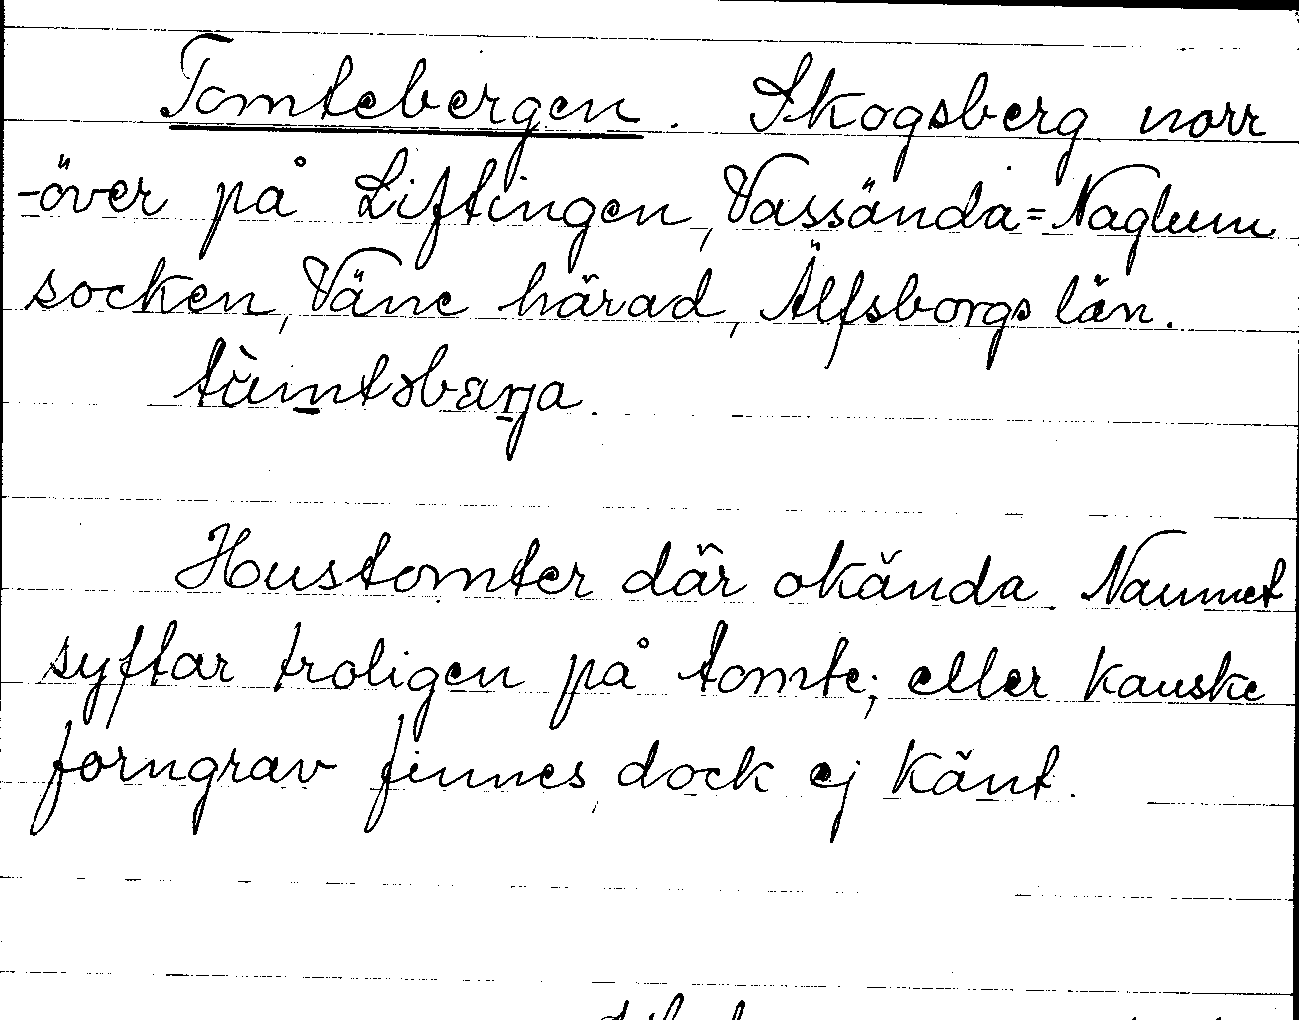 Tomtebergen. Skogsberg norr
-över på Liftingen, Vassända=Naglum
socken, Väne härad, Älfsborgs län.
tùmtəbærja.
Hustomter där okända. Namnet
syftar troligen på tomte; eller kanske
forngrav finnes, dock ej känt.